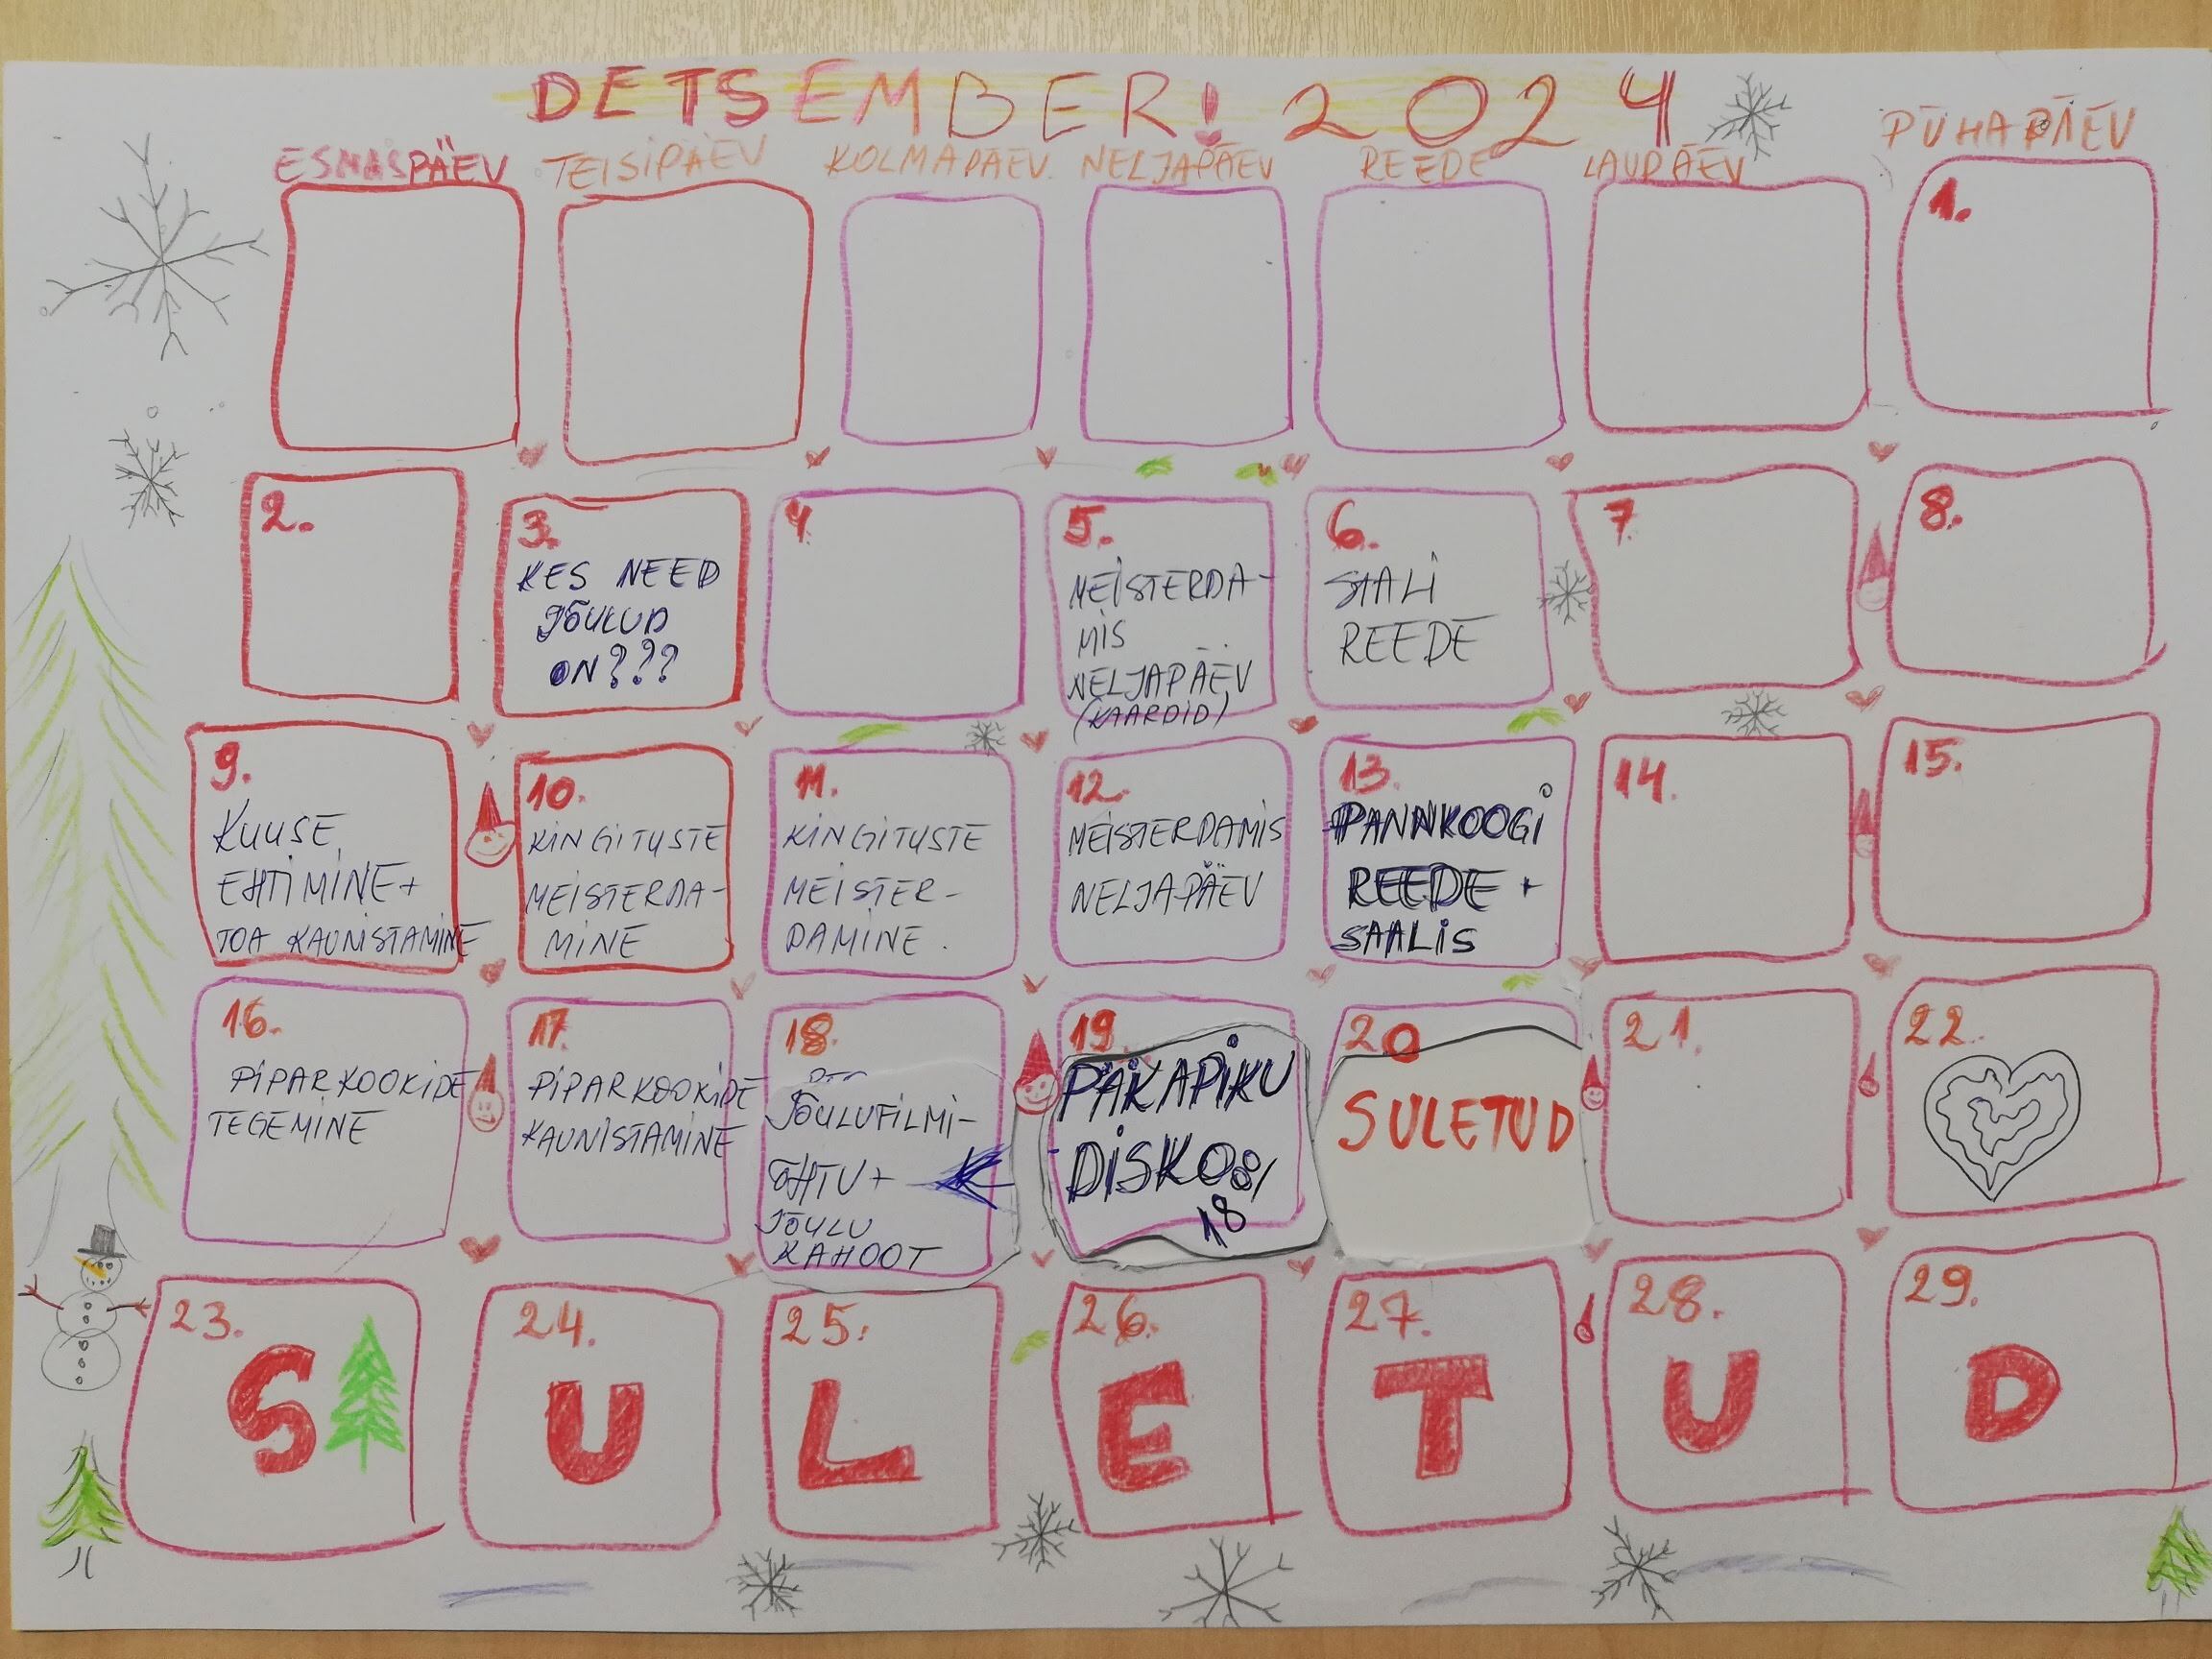 DETSEMBER! 2024
ESMASPÄEV TEISIPÄEV KOLMAPÄEV. NELJAPÄEV REEDE LAUPÄEV PÜHAPÄEV
1.
2.
3.
KES NEED
JÕULUD
ON???
4.
5.
MEISTERDA-
MIS
NELJAPÄEV
(KAARDID)
6.
SAALI
REEDE
7.
8.
9.
KUUSE
EHTIMINE+
TOA KAUNISTAMINE
10.
KINGITUSTE
MEISTERDA-
MINE
11.
KINGITUSTE
MEISTER-
DAMINE.
12.
MEISTERDAMIS
NELJAPÄEV
13.
PANNKOOGI
REEDE +
SAALIS
14.
15.
16.
PIPARKOOKIDE
TEGEMINE
17.
PIPARKOOKIDE
KAUNISTAMINE
18.
JÕULUFILMI-
ÕHTU+
JÕULU
KAHOOT
19.
PÄKAPIKU
DISKO
18
20
SULETUD
21.
22.
23.
S
24.
U
25.
L
26.
E
27.
T
28.
U
29.
D